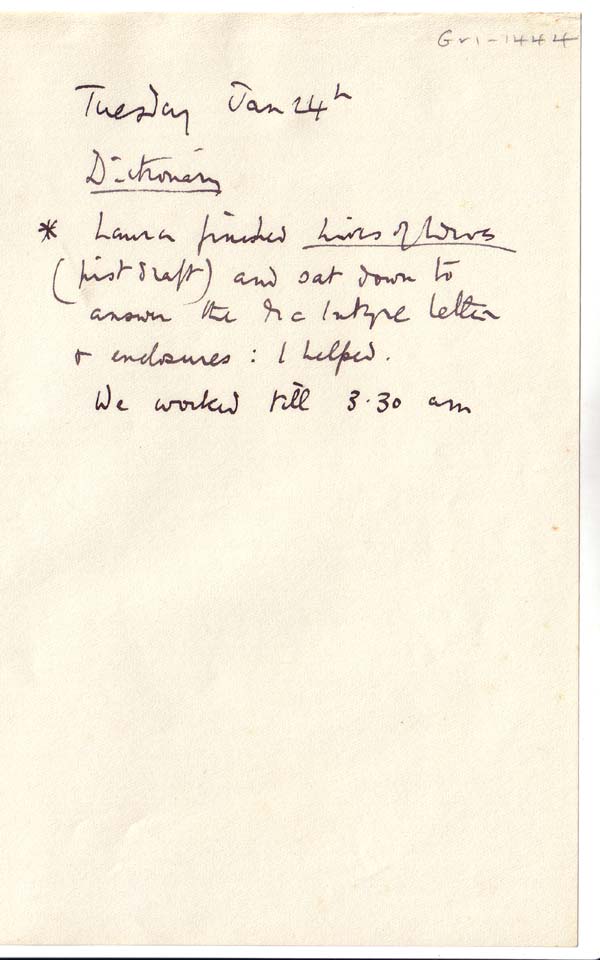 Gr1-1444
Tuesday Jan 24th
Dictionary
* Laura finished Lives of Wives
(first draft) and sat down to
answer the McIntyre letter
+ enclosures: I helped.
We worked till 3.30 am